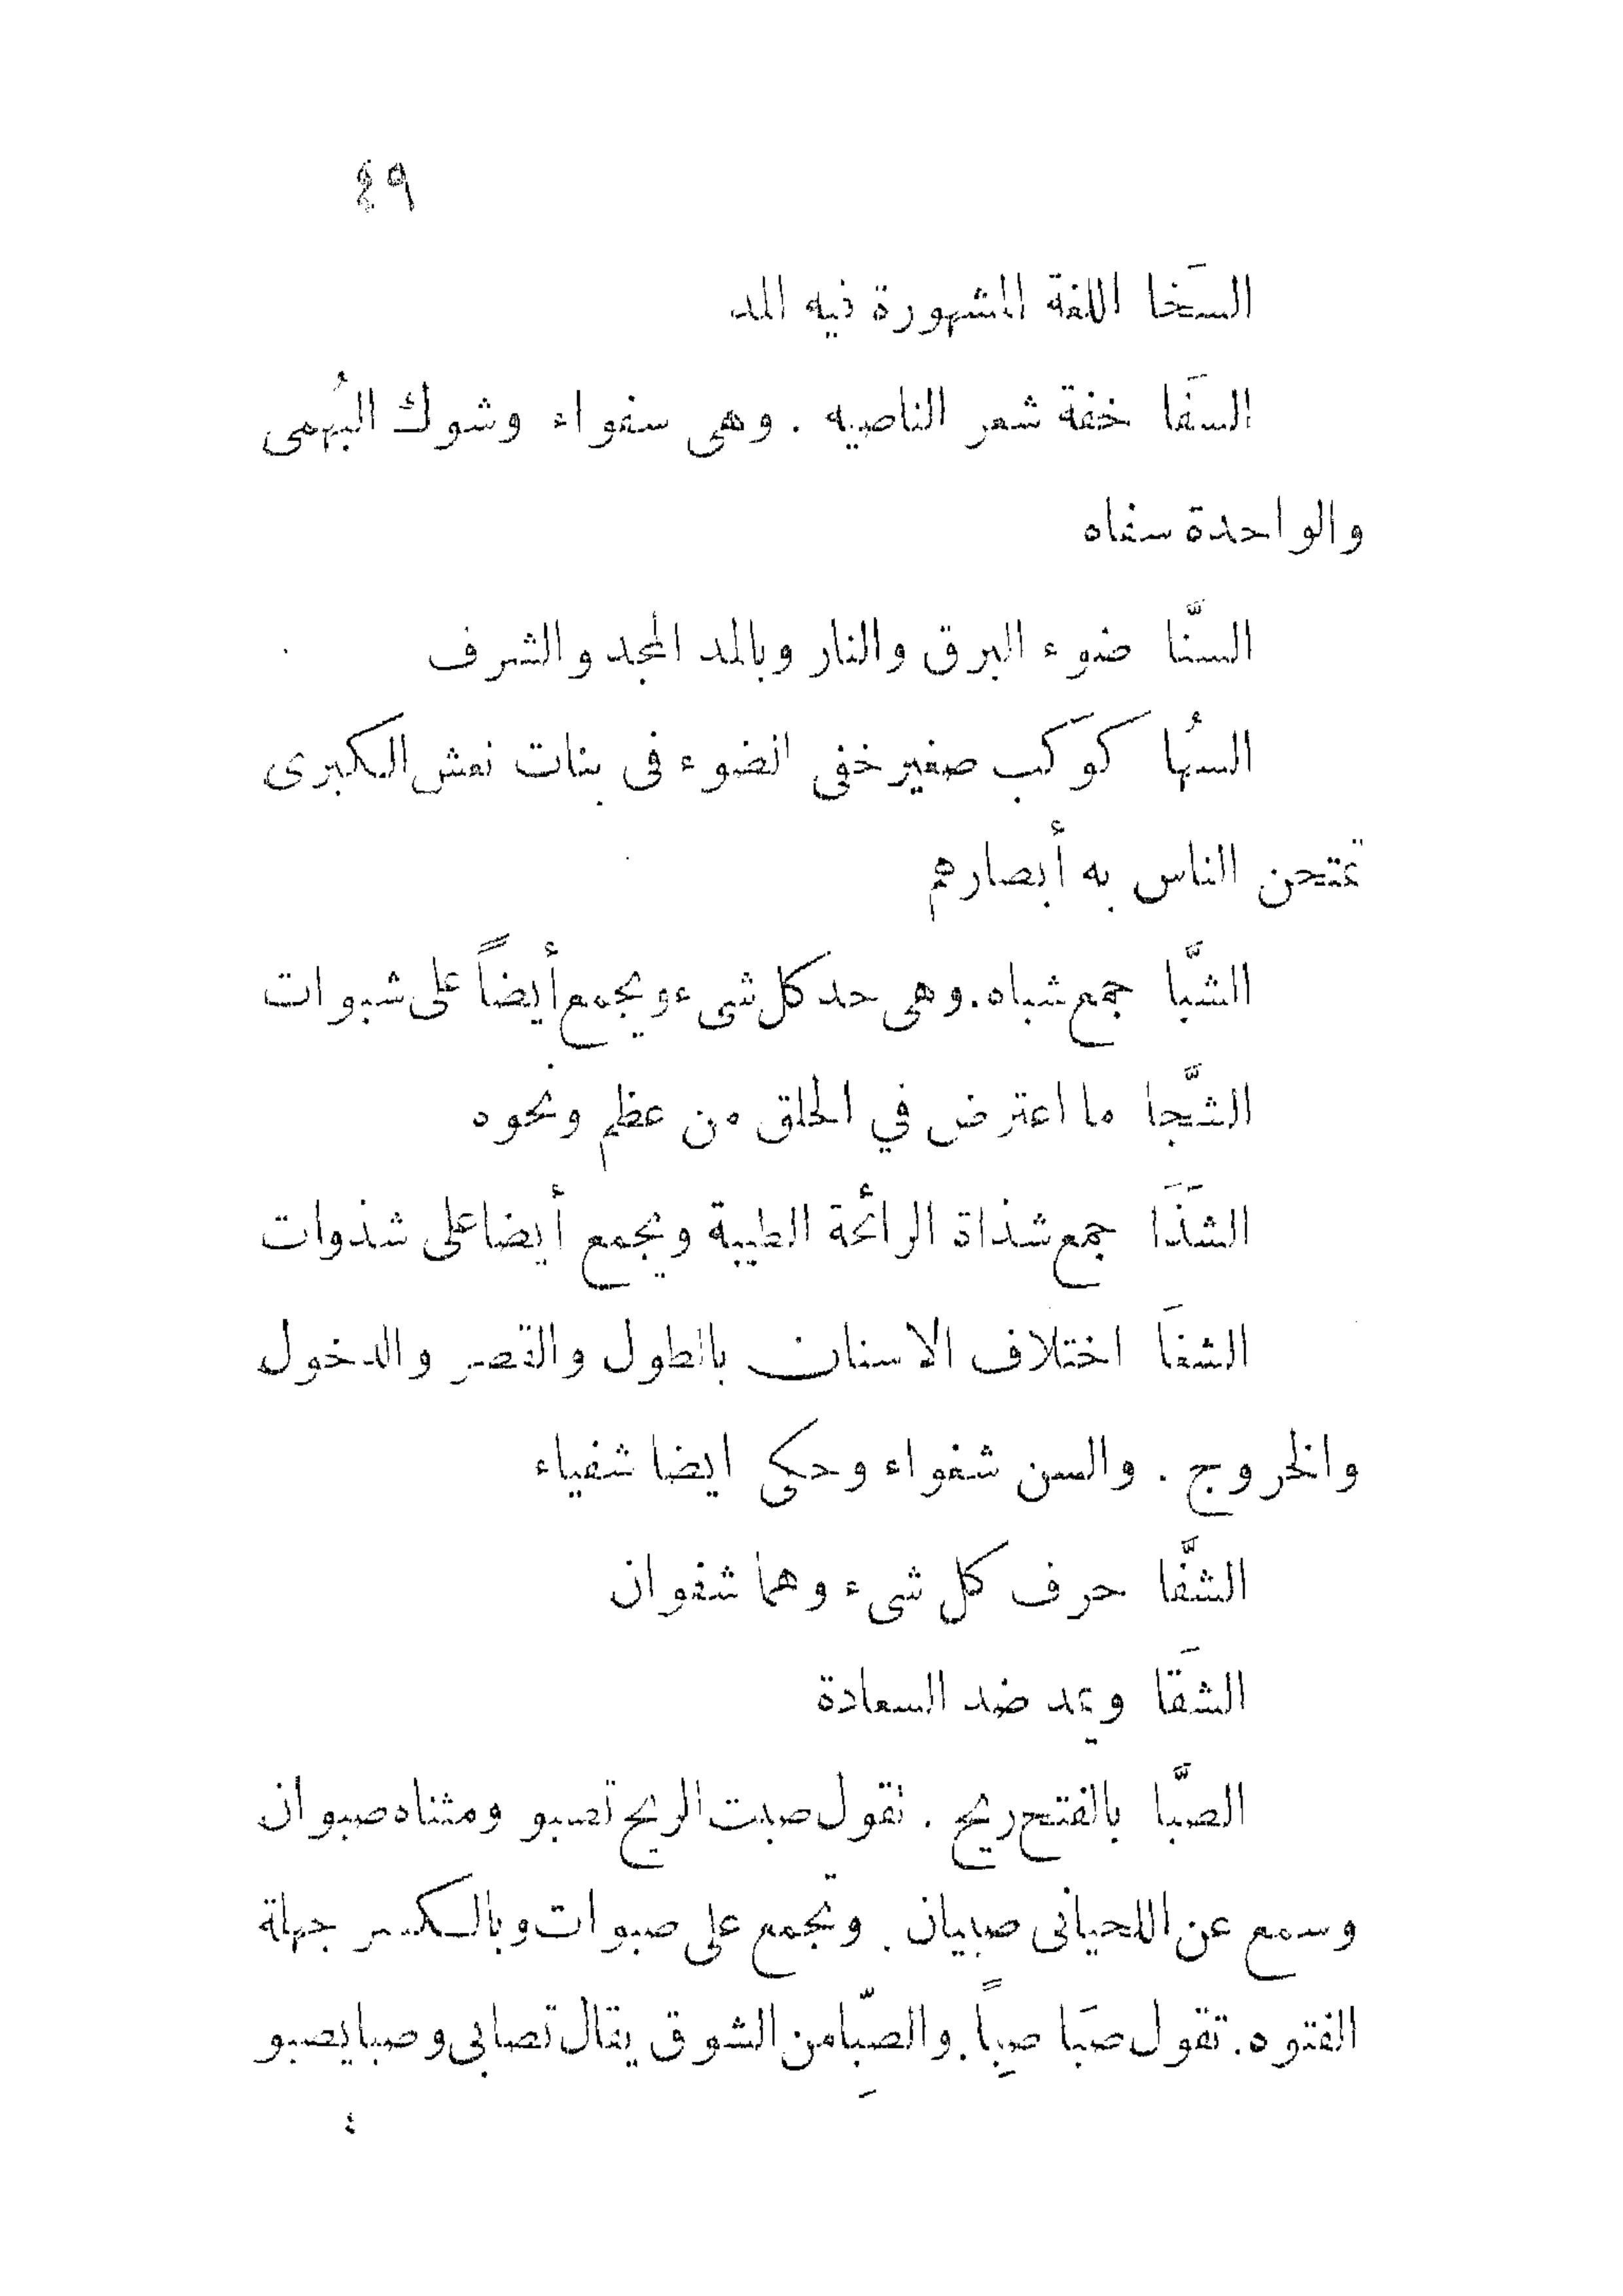 ٤٩
السَخا اللغة المشهورة فيه المد
السفَا خفة شعر الناصيه . وهى سفواء وشوك البُهمى
والواحدة سفاه
السَّنا ضوء البرق والنار وبالمد المجد والشرف
السُها كوَكب صغير خفى الضوء فى بنات نعش الكبرى
تمتحن الناس به أبصارهم
الشَّبا جمع شباه . وهى حد كل شىء ويجمع أيضاً على شبوات
الشَّجا ما اعترض في الحلق من عظم ونحوه
الشَذَا جمع شذاة الرائحة الطيبة ويجمع أيضا على شذوات
الشغَا اختلاف الاسنان بالطول والقصر والدخول
والخروج . والسن شغواء وحكى ايضا شغياء
الشَّفا حرف كل شىء وهما شفوان
الشقَا ويمد ضد السعادة
الصَّبا بالفتح ريح . تقول صبت الريح تصبو ومثناه صبوان
وسمع عن اللحيانى صبيان . وتجمع على صبوات وبالكسر جهلة
الفتوه . تقول صبَا صِباً . والصِّبا من الشوق يقال تصابى وصبا يصبو
٤